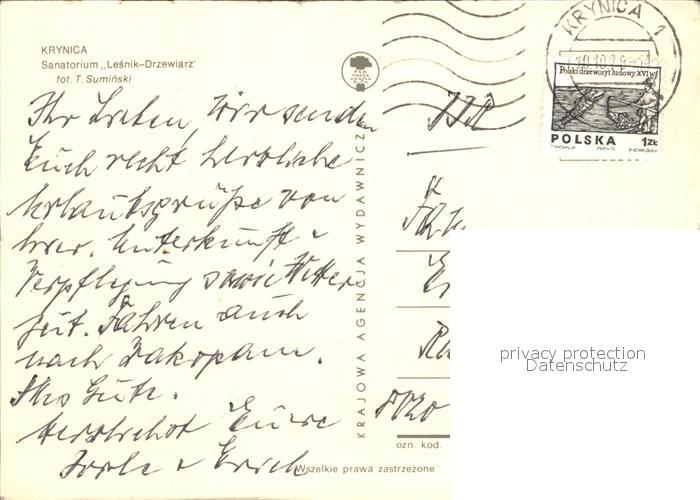 KRYNICA
Sanatorium „Leśnik-Drzewiarz"
fot. T. Sumiński
Ihr Lieben, Wir senden
Euch recht herzliche
Urlaubsgrüße von
hier. Unterkunft u
Verpflegung sowie Wetter
gut. Fahren auch
nach Zakopane.
Alles Gute.
Herzlichst Eure
u Erich
KRAJOWA AGENCJA WYDAWNICZA
KRYNICA 1
Polski drzeworyt ludowy XVI w.
POLSKA 1 ZŁ
ozn. kod.
Wszelkie prawa zastrzeżone
privacy protection
Datenschutz